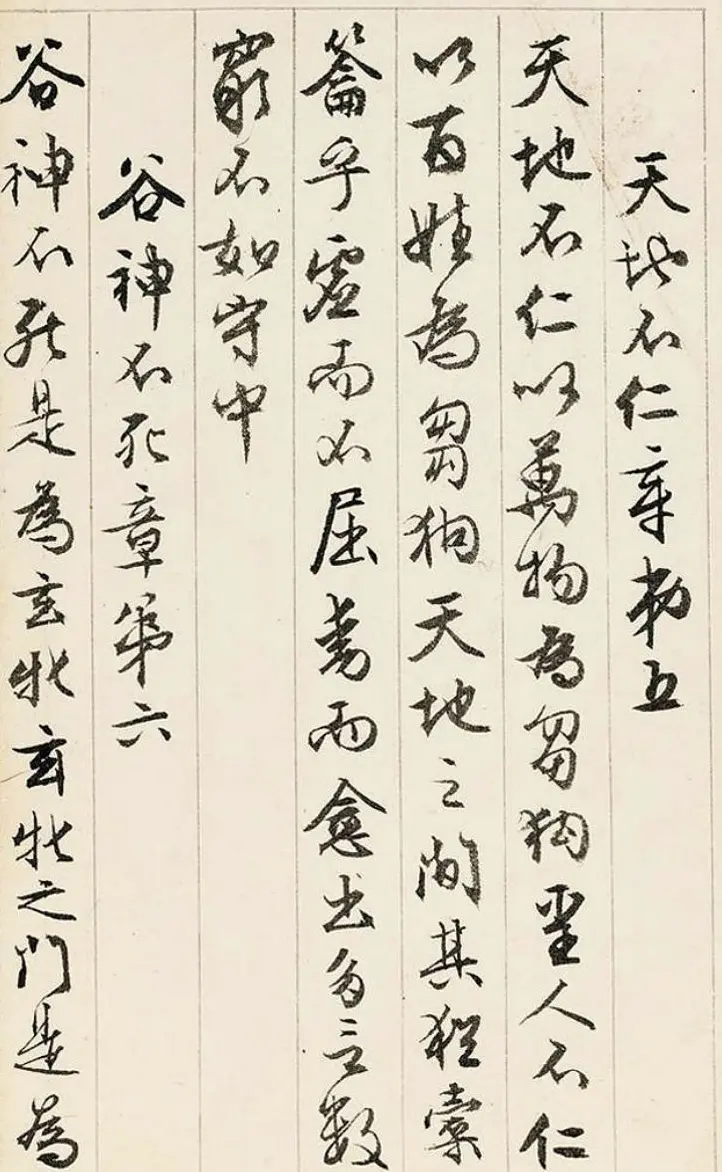 天地不仁章第五
天地不仁以萬物為芻狗聖人不仁
以百姓為芻狗天地之間其猶橐
籥乎虛而不屈動而愈出多言數
窮不如守中
谷神不死章第六
谷神不死是為玄牝玄牝之門是為